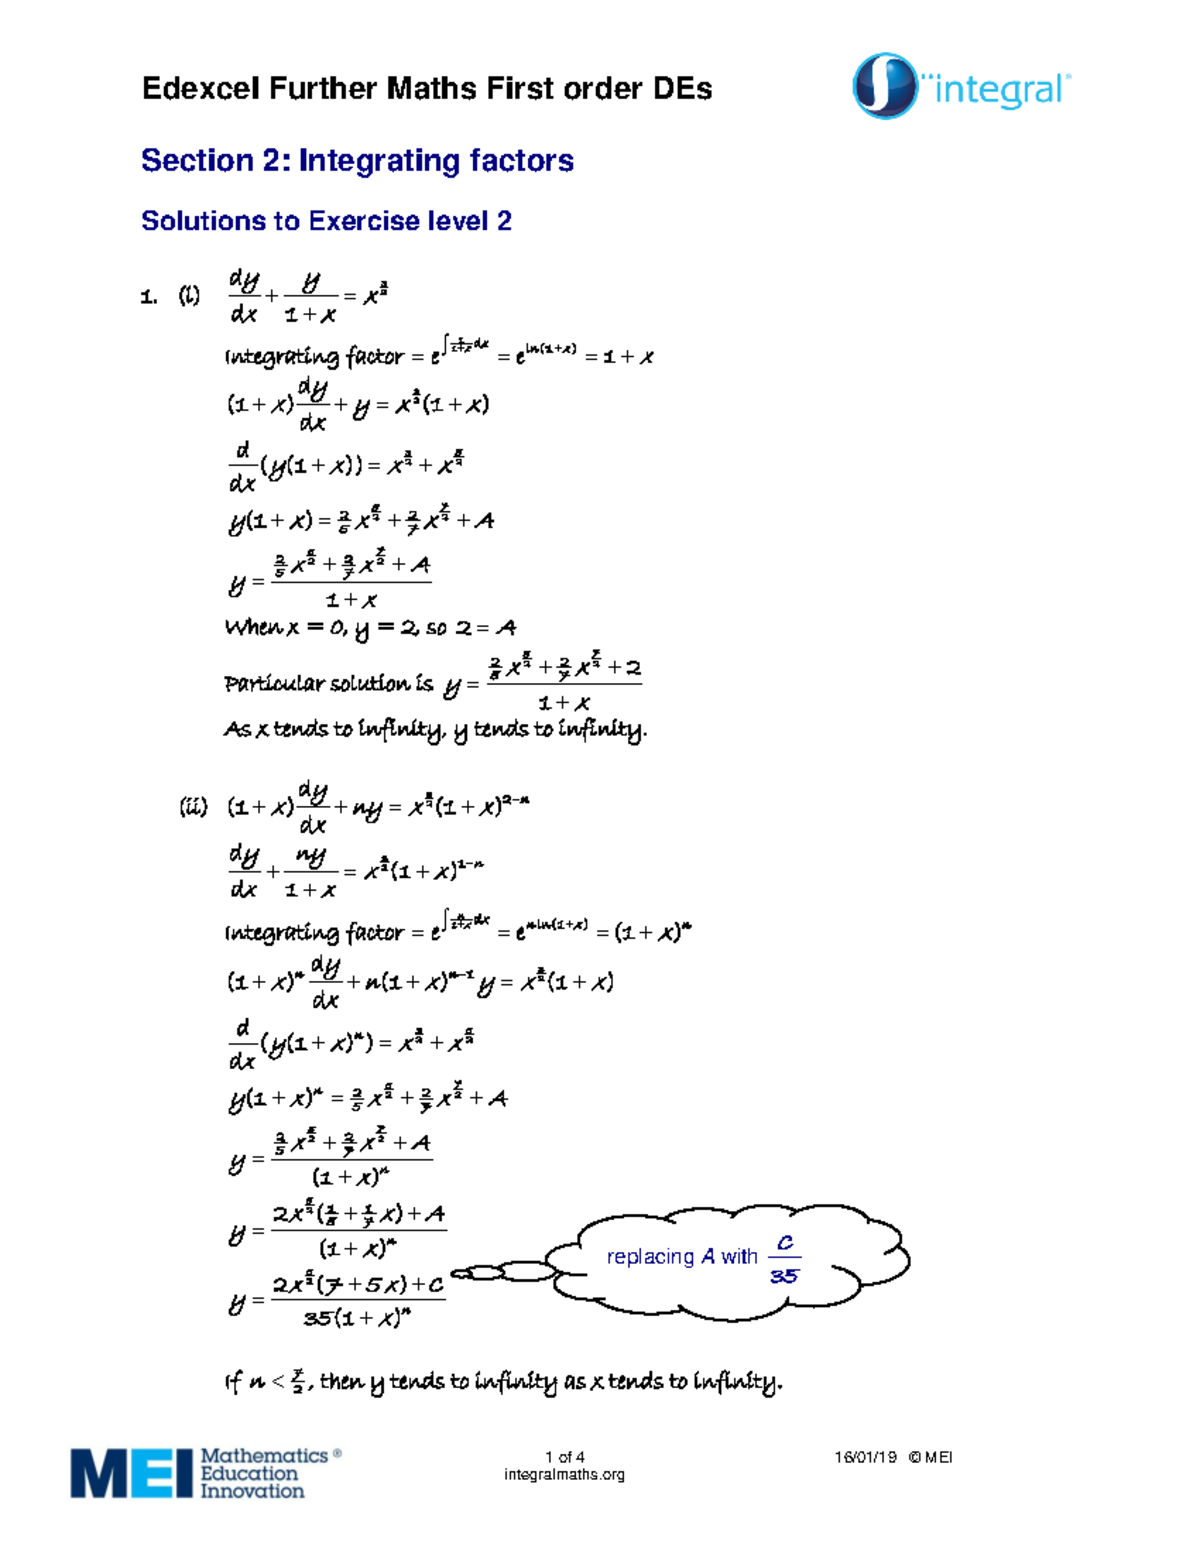 Edexcel Further Maths First order DEs
integral
Section 2: Integrating factors
Solutions to Exercise level 2
1. (i) dy/dx + y/(1 + x) = x^(3/2)
Integrating factor = e^(∫ 1/(1+x) dx) = e^(ln(1+x)) = 1 + x
(1 + x) dy/dx + y = x^(3/2)(1 + x)
d/dx (y(1 + x)) = x^(3/2) + x^(5/2)
y(1 + x) = 2/5 x^(5/2) + 2/7 x^(7/2) + A
y = (2/5 x^(5/2) + 2/7 x^(7/2) + A)/(1 + x)
When x = 0, y = 2, so 2 = A
Particular solution is y = (2/5 x^(5/2) + 2/7 x^(7/2) + 2)/(1 + x)
As x tends to infinity, y tends to infinity.
(ii) (1 + x) dy/dx + ny = x^(3/2)(1 + x)^(2-n)
dy/dx + ny/(1 + x) = x^(3/2)(1 + x)^(1-n)
Integrating factor = e^(∫ n/(1+x) dx) = e^(n ln(1+x)) = (1 + x)^n
(1 + x)^n dy/dx + n(1 + x)^(n-1) y = x^(3/2)(1 + x)
d/dx (y(1 + x)^n) = x^(3/2) + x^(5/2)
y(1 + x)^n = 2/5 x^(5/2) + 2/7 x^(7/2) + A
y = (2/5 x^(5/2) + 2/7 x^(7/2) + A)/(1 + x)^n
y = (2x^(5/2)(1/5 + 1/7 x) + A)/(1 + x)^n
replacing A with C/35
y = (2x^(5/2)(7 + 5x) + C)/(35(1 + x)^n)
If n < 7/2, then y tends to infinity as x tends to infinity.
MEI Mathematics®
Education
Innovation
1 of 4
integralmaths.org
16/01/19 © MEI